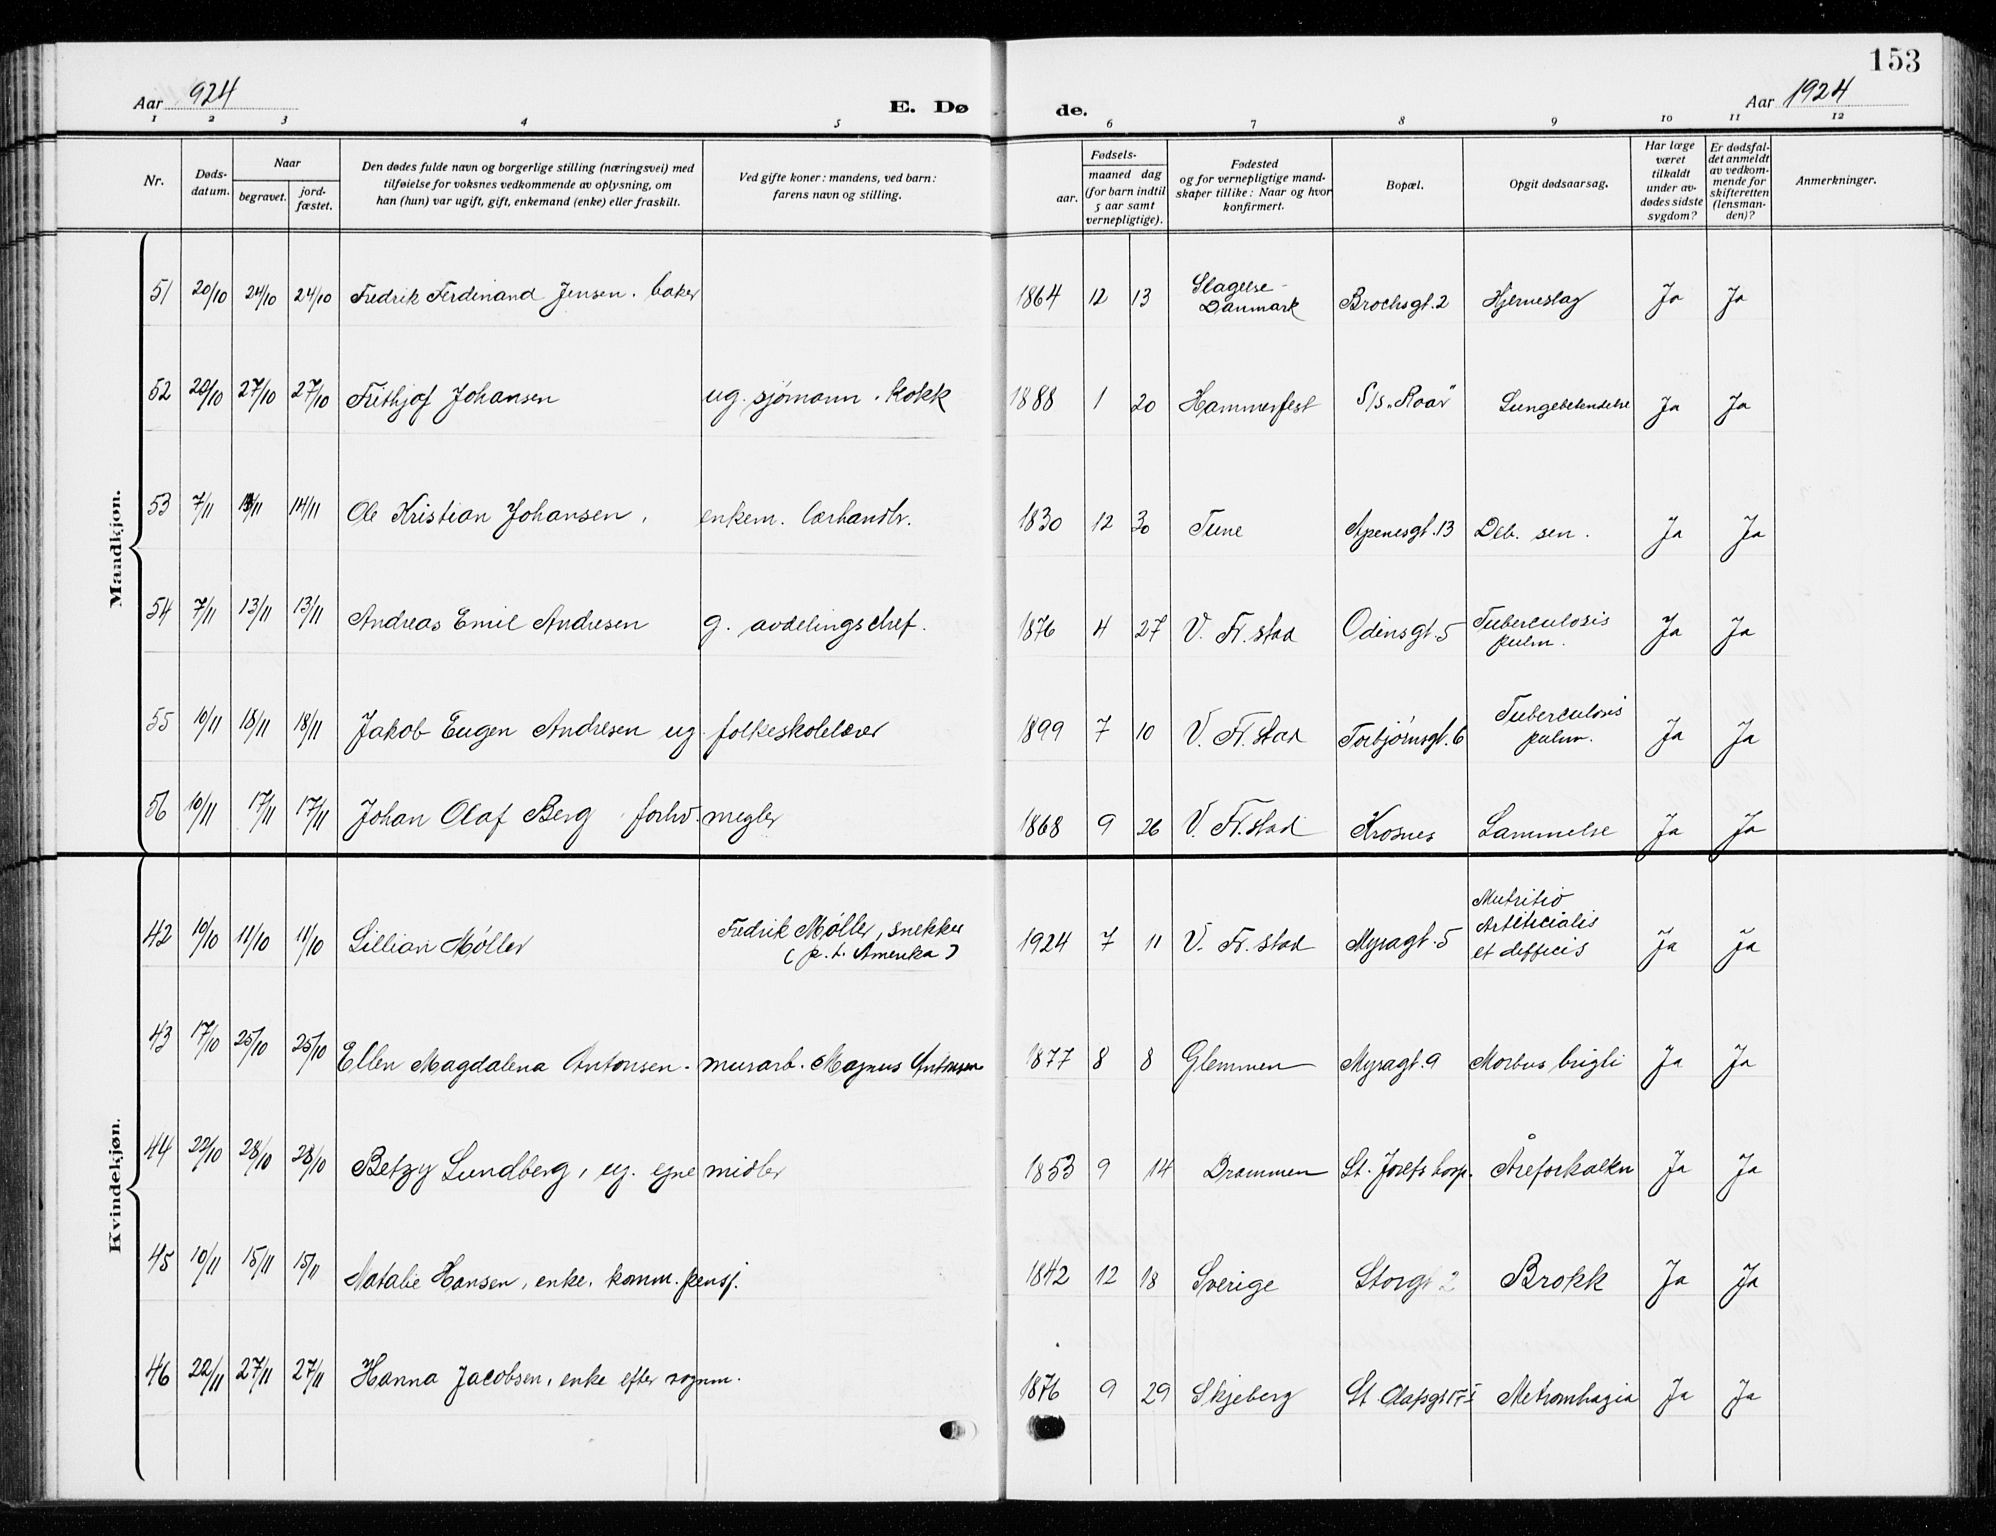 153
Aar 924 E. Dø de. Aar 1924
1 2 3 4 5 6 7 8 9 10 11 12
Nr. Døds-datum. Naar begravet. jord-fæstet. Den dødes fulde navn og borgerlige stilling (næringsvei) med tilføielse for voksnes vedkommende av oplysning, om han (hun) var ugift, gift, enkemand (enke) eller fraskilt. Ved gifte koner: mandens, ved barn: farens navn og stilling. Fødsels- aar. maaned dag (for barn indtil 5 aar samt vernepligtige). Fødested og for vernepligtige mand-skaper tillike: Naar og hvor konfirmert. Bopæl. Opgit dødsaarsag. Har læge været tilkaldt under av-dødes sidste sygdom? Er dødsfal-det anmeldt av vedkom-mende for skifteretten (lensman-den)? Anmerkninger.
Mandkjøn.
51 20/10 24/10 24/10 Fredrik Ferdinand Jensen. baker 1864 12 13 Slagelse - Danmark Brochsgt. 2 Hjerneslag Ja Ja
52 20/10 27/10 27/10 Frithjof Johansen ug. sjømann. Kokk 1888 1 20 Hammerfest S/s "Roar" Lungebetendelse Ja Ja
53 7/11 14/11 Ole Kristian Johansen, enkem. lærhandlr. 1830 12 30 Tune Apenesgt. 13 Deb. sen. Ja Ja
54 7/11 13/11 13/11 Andreas Emil Andresen g. avdelingschef. 1876 4 27 V. Fr. stad Odinsgt. 5 Tuberculosis pulm. Ja Ja
55 10/11 18/11 18/11 Jakob Eugen Andresen ug. folkeskolelærer 1899 7 10 V. Fr. stad Torbjørnsgt. 6 Tuberculosis pulm. Ja Ja
56 10/11 17/11 17/11 Johan Olaf Berg forhv. megler 1868 9 26 V. Fr. stad Krosnes Lammelse Ja Ja
Kvindekjøn.
42 10/10 11/10 11/10 Lillian Møller Fredrik Møller, snekker (p. t. Amerika) 1924 7 11 V. Fr. stad Myragt. 5 Nutritio Artificialis et difficis Ja Ja
43 17/10 25/10 25/10 Ellen Magdalena Antonsen. murarb. Magnus Antonsen 1877 8 8 Glemmen Myragt. 9 Morbus brigti Ja Ja
44 22/10 28/10 28/10 Betzy Lundberg, ug. egne midler 1853 9 14 Drammen St. Josefs hosp. Åreforkalkn Ja Ja
45 10/11 15/11 15/11 Natalie Hansen, enke, komm. pensj. 1842 12 18 Sverige Storgt 2 Brokk Ja Ja
46 22/11 27/11 27/11 Hanna Jacobsen, enke efter vognm. 1876 9 29 Skjeberg St Olafsgt Metromhagia Ja Ja